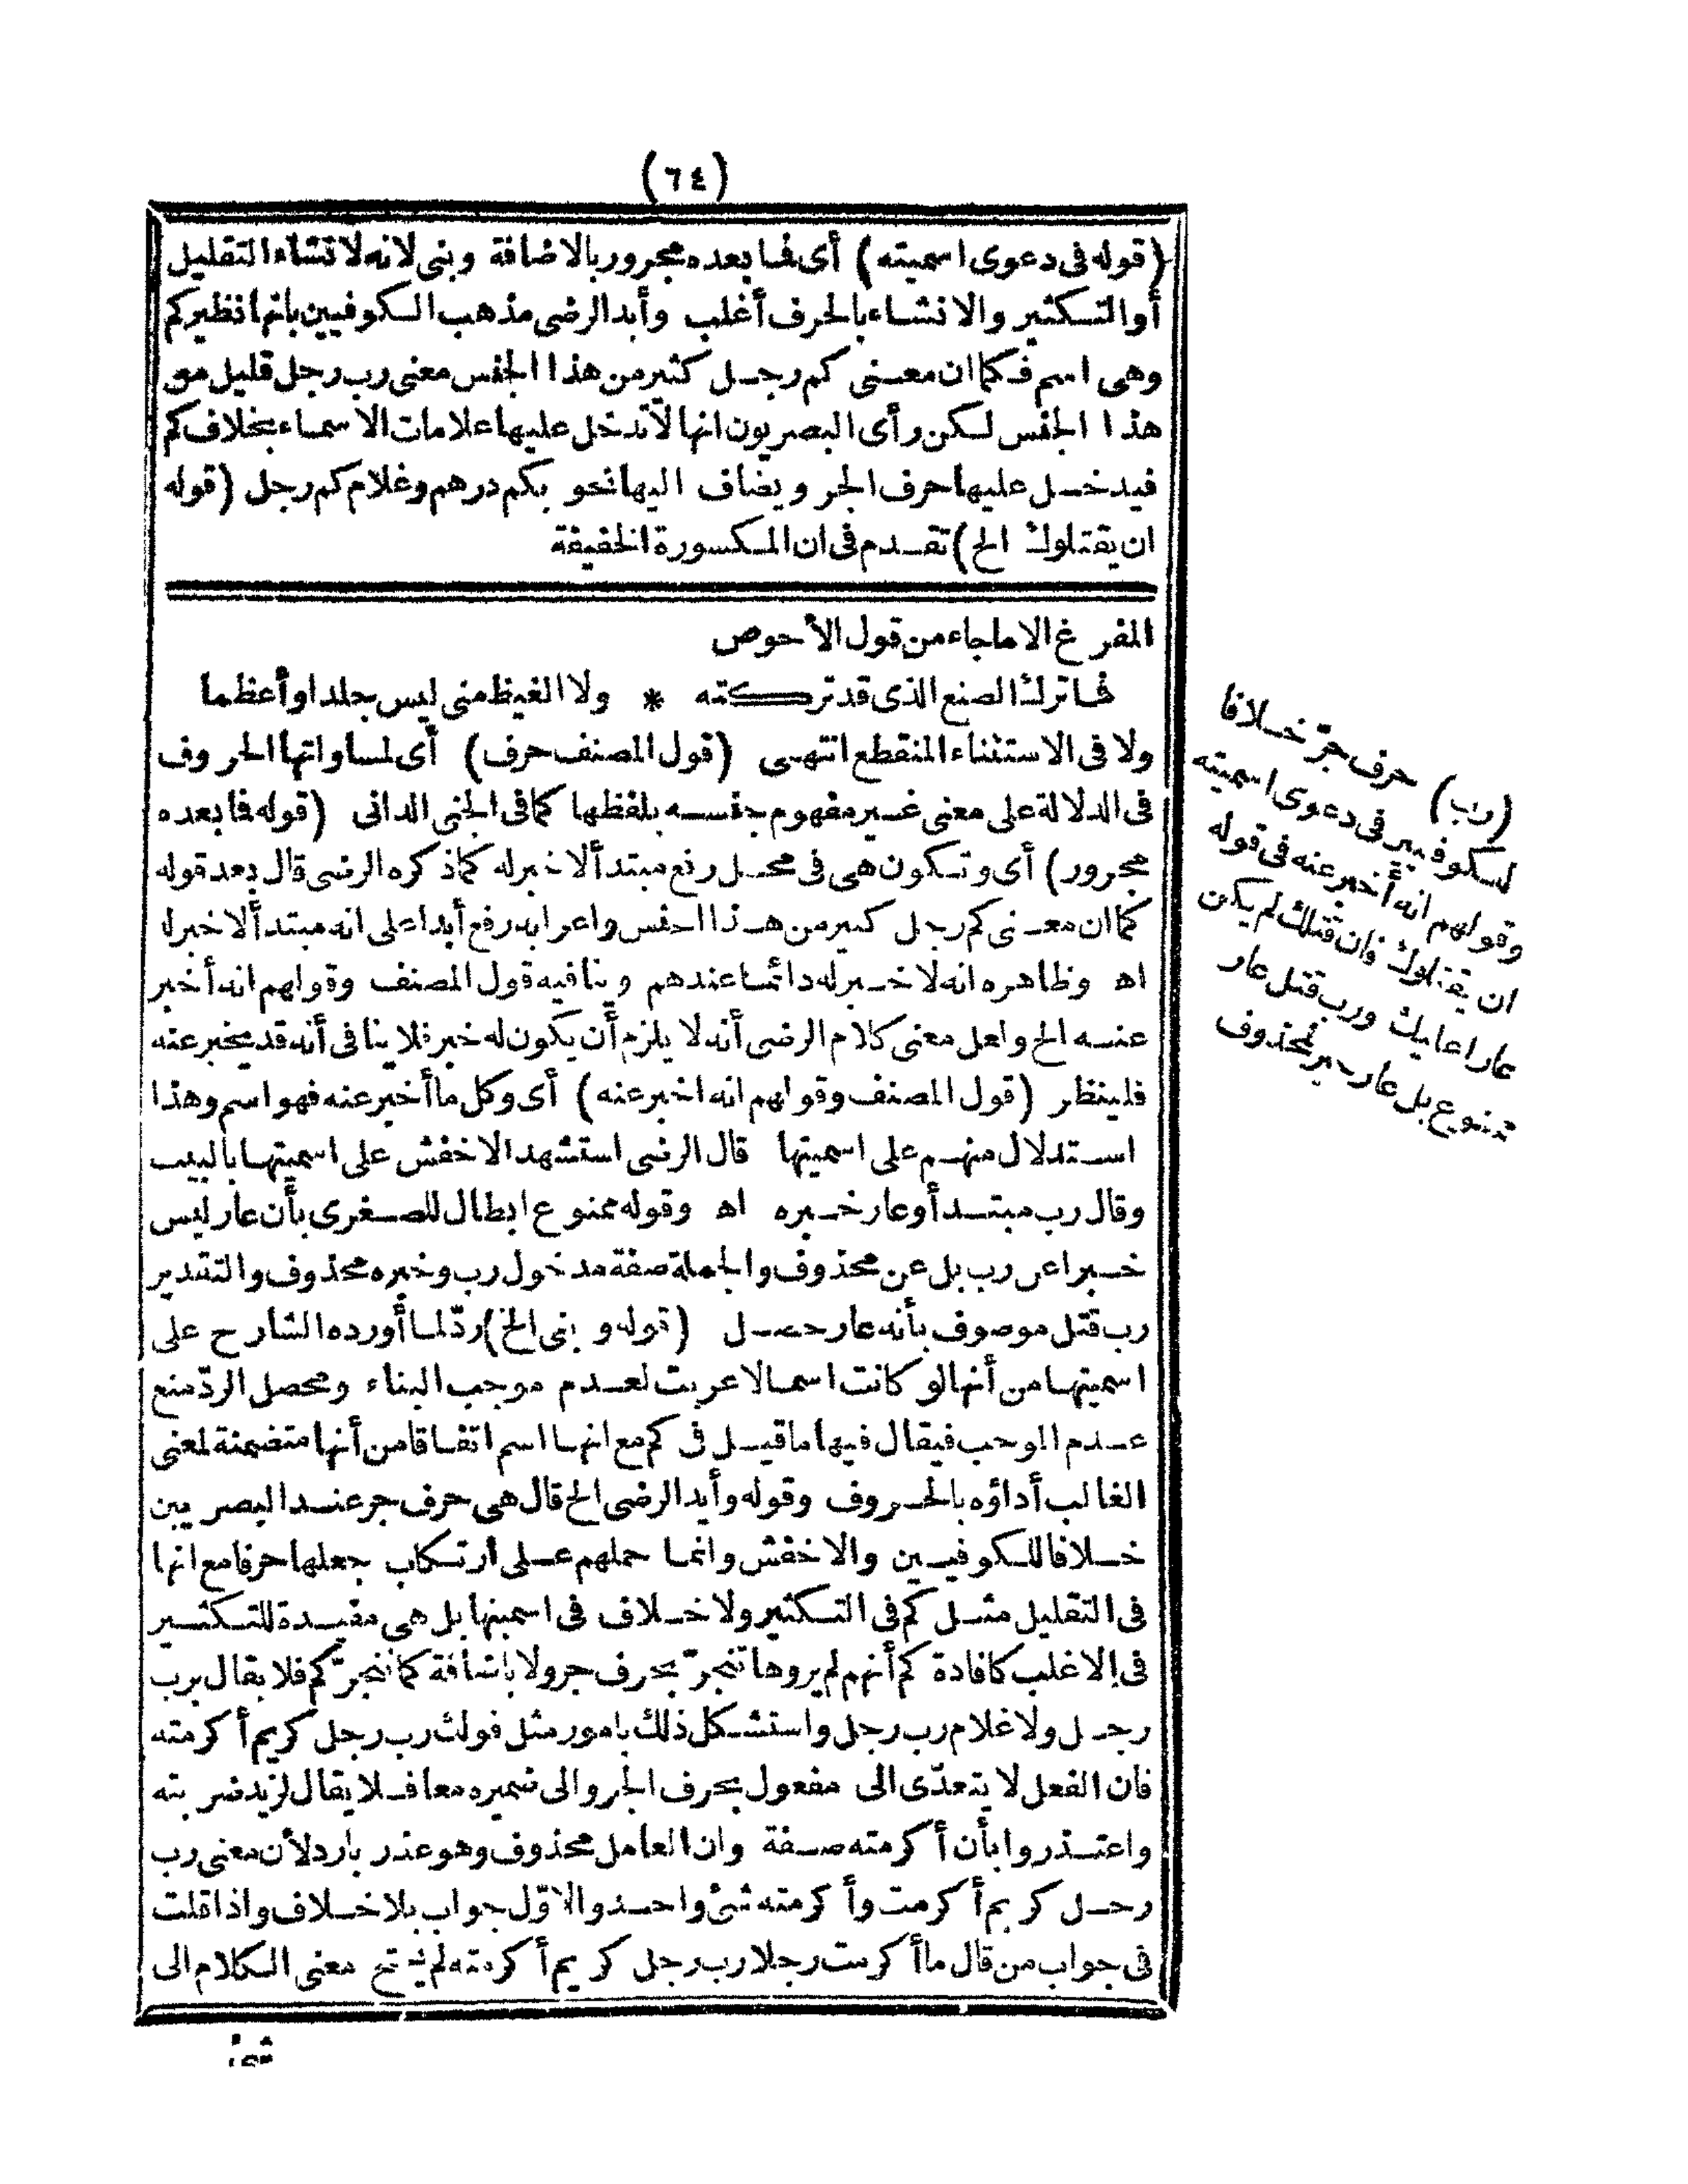 (٦٤)
(قوله فى دعوى اسميته) أى فما بعده مجرور بالاضافة وبنى لانه لانشاء التقليل
أوالتكثير والانشاء بالحرف أغلب وأيد الرضى مذهب الكوفيين بانها نظير كم
وهى اسم فكما ان معنى كم رجل كثير من هذا الجنس معنى رب رجل قليل من
هذا الجنس لكن رأى البصريون انها لا تدخل عليها علامات الاسماء بخلاف كم
فيدخل عليها حرف الجر ويضاف اليها نحو بكم درهم وغلام كم رجل (قوله
ان يقتلوك الخ) تقدم فى ان المكسورة الخفيفة
المفرغ الا ما جاء من قول الأحوص
فما ترك الصنع الذى قد تركته * ولا الغيظ منى ليس جلدا وأعظما
ولا فى الاستثناء المنقطع انتهى (قول المصنف حرف) أى لمساواتها الحروف
فى الدلالة على معنى غير مفهوم جنسه بلفظها كما فى الجنى الدانى (قوله فما بعده
مجرور) أى وتكون هى فى محل رفع مبتدأ لا خبر له كما ذكره الرضى قال بعد قوله
كما ان معنى كم رجل كثير من هذا الجنس واعرابه رفع أبدا على انه مبتدأ لا خبر له
اه وظاهره انه لا خبر له دائما عندهم وينافيه قول المصنف وقولهم انه أخبر
عنه الخ ولعل معنى كلام الرضى أنه لا يلزم أن يكون له خبر فلا ينافى أنه قد يخبر عنه
فلينظر (قول المصنف وقولهم انه اخبر عنه) أى وكل ما أخبر عنه فهو اسم وهذا
استدلال منهم على اسميتها قال الرضى استشهد الاخفش على اسميتها بالبيت
وقال رب مبتدأ وعار خبره اه وقوله ممنوع ابطال للصغرى بأن عار ليس
خبرا عن رب بل عن محذوف والجملة صفة مدخول رب وخبره محذوف والتقدير
رب قتل موصوف بأنه عار حصل (قوله وبنى الخ) ردّ لما أورده الشارح على
اسميتها من أنها لو كانت اسما لاعربت لعدم موجب البناء ومحصل الردّ منع
عدم الموجب فيقال فيها ما قيل فى كم مع انها اسم اتفاقا من أنها متضمنة لمعنى
الغالب أداؤه بالحروف وقوله وأيد الرضى الخ قال هى حرف جر عند البصريين
خلافا للكوفيين والاخفش وانما حملهم على ارتكاب جعلها حرفا مع انها
فى التقليل مثل كم فى التكثير ولا خلاف فى اسميتها بل هى مفيدة للتكثير
فى الاغلب كافادة كم أنهم لم يروها تنجرّ بحرف جر ولا باضافة كما تنجرّ كم فلا يقال برب
رجل ولا غلام رب رجل واستشكل ذلك بامور مثل قولك رب رجل كريم أكرمته
فان الفعل لا يتعدّى الى مفعول بحرف الجر والى ضميره معا فلا يقال لزيد ضربته
واعتذروا بأن أكرمته صفة وان العامل محذوف وهو عذر بارد لأن معنى رب
رجل كريم أكرمت وأكرمته شئ واحد والاوّل جواب بلا خلاف واذا قلت
فى جواب من قال ما أكرمت رجلا رب رجل كريم أكرمته لم يحتج معنى الكلام الى
شئ
(رب) حرف جرّ خلافا
للكوفيين فى دعوى اسميته
وقولهم انه أخبر عنه فى قوله
ان يقتلوك فان قتلك لم يكن
عارا عليك ورب قتل عار
ممنوع بل عار خبر لمحذوف